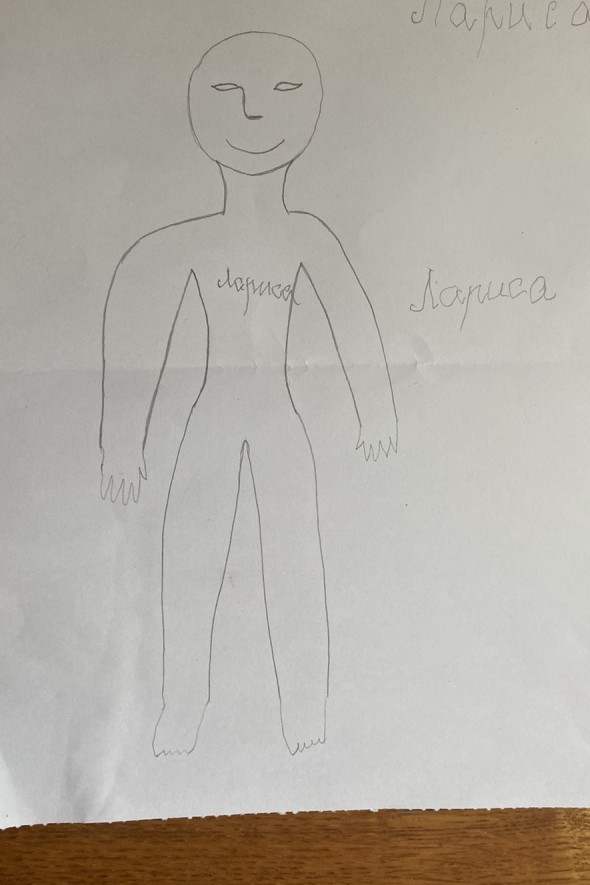 Лариса
Лариса
Лариса